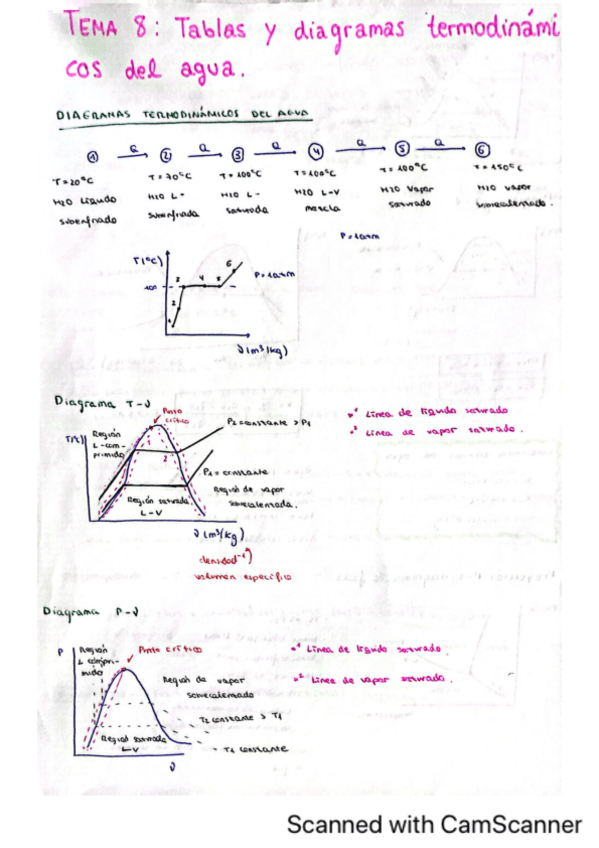 TEMA 8: Tablas y diagramas termodinámi
cos del agua.
DIAGRAMAS TERMODINÁMICOS DEL AGUA
① Q ② Q ③ Q ④ Q ⑤ Q ⑥
T=20°C T=70°C T=100°C T=100°C T=100°C T=150°C
H2O Líquido H2O L- H2O L- H2O L-V H2O Vapor H2O vapor
subenfriado subenfriada saturada mezcla saturado sobrecalentado.
P=1atm
T(°C)
6
3 4 5
100
P=1atm
2
1
V(m³/kg)
Diagrama T-V
Punto
crítico
T(°C)
Región
L-com-
primido
P2=constante > P1
1
2
P1=constante
Región de vapor
sobrecalentada.
Región saturada
L-V
V(m³/kg)
densidad⁻¹)
volumen específico
•¹ Línea de líquido saturado
•² Línea de vapor saturado.
Diagrama P-V
P
Región
L compri-
mido
Punto crítico
Región de vapor
sobrecalentado
T2 constante > T1
Región saturada
L-V
T1 constante
V
•¹ Línea de líquido saturado
•² Línea de vapor saturado.
Scanned with CamScanner